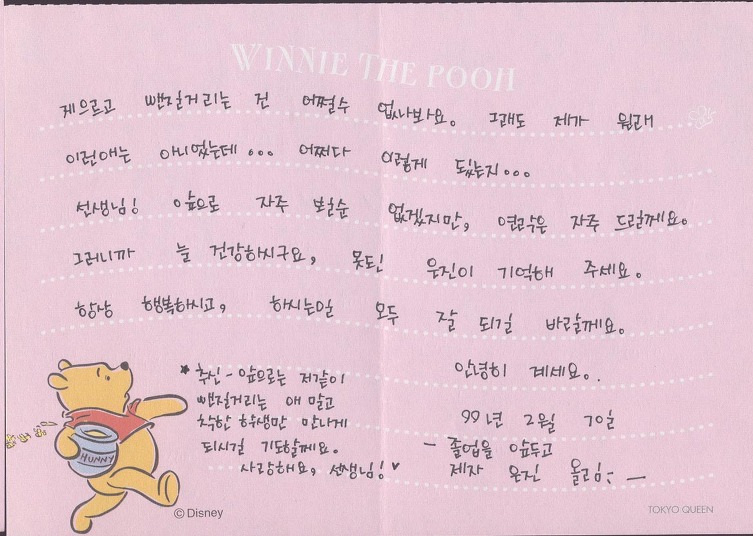 WINNIE THE POOH
게으르고 뺀질거리는 건 어쩔수 없나봐요. 그래도 제가 원래
이런애는 아니었는데... 어쩌다 이렇게 됐는지...
선생님! 앞으로 자주 보진 없겠지만, 연락은 자주 드릴께요.
그러니까 늘 건강하시구요, 못된 유진이 기억해 주세요.
항상 행복하시고, 하시는일 모두 잘 되길 바랄께요.
안녕히 계세요.
99년 2월 10일
- 졸업을 앞두고
제자 유진 올림; -
★ 추신 - 앞으로는 저같이
뺀질거리는 애 말고
착한 학생만 만나게
되시길 기도할께요.
사랑해요, 선생님!♥
HUNNY
© Disney
TOKYO QUEEN